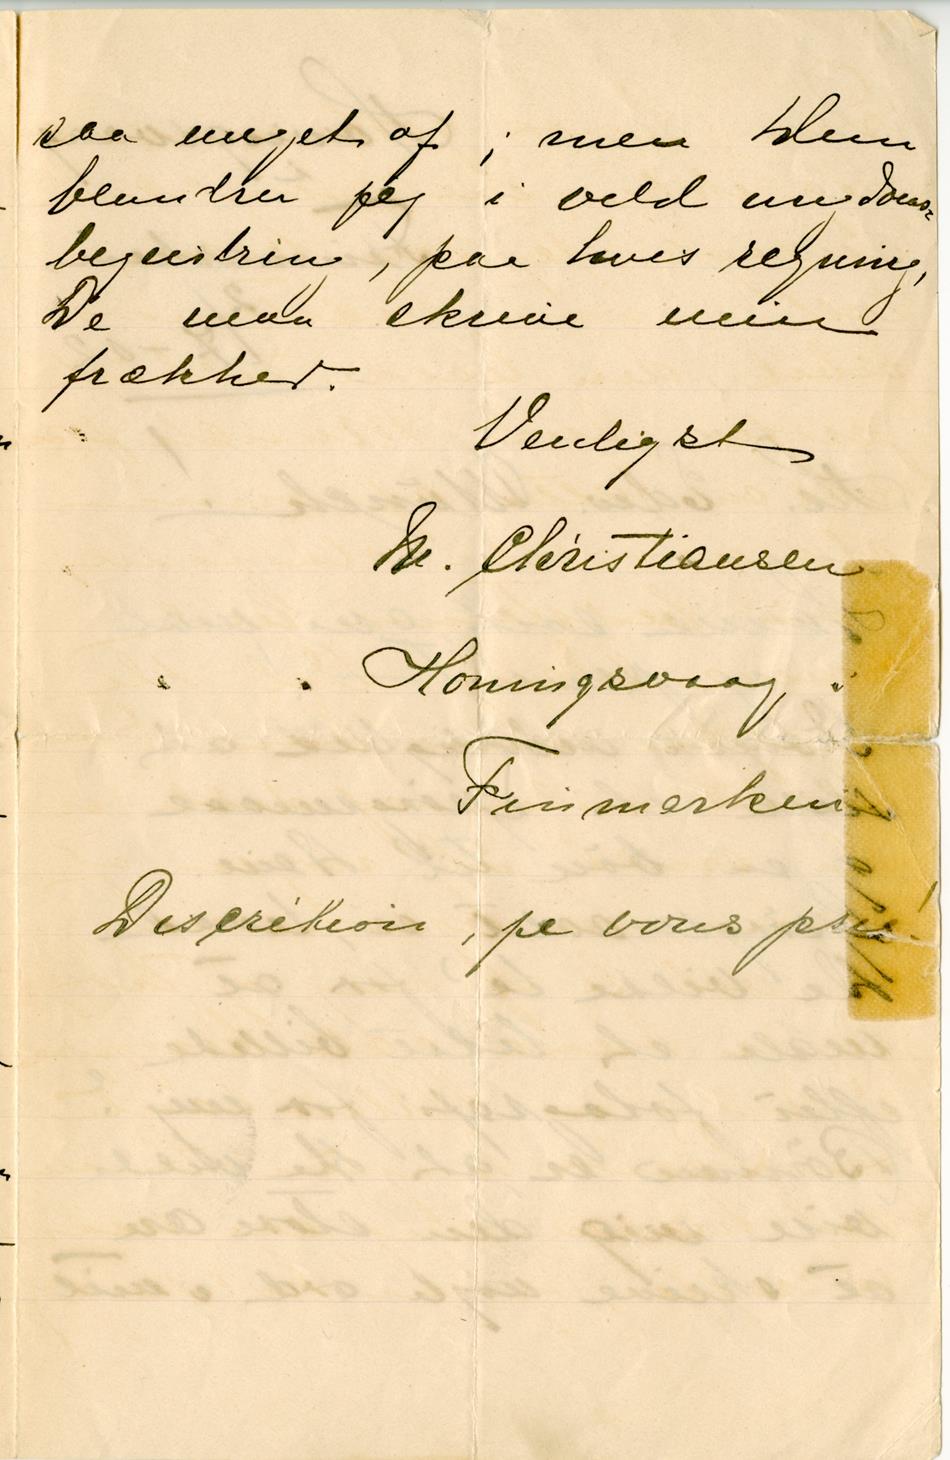 saa meget af ; men Dem
beundrer jeg i vild ungdoms-
begeistring, paa hvis regning,
De maa skrive min
frækhed.
Venligst
M. Christiansen
Honningsvaag,
Finmarken
Discrétion, je vous prie!